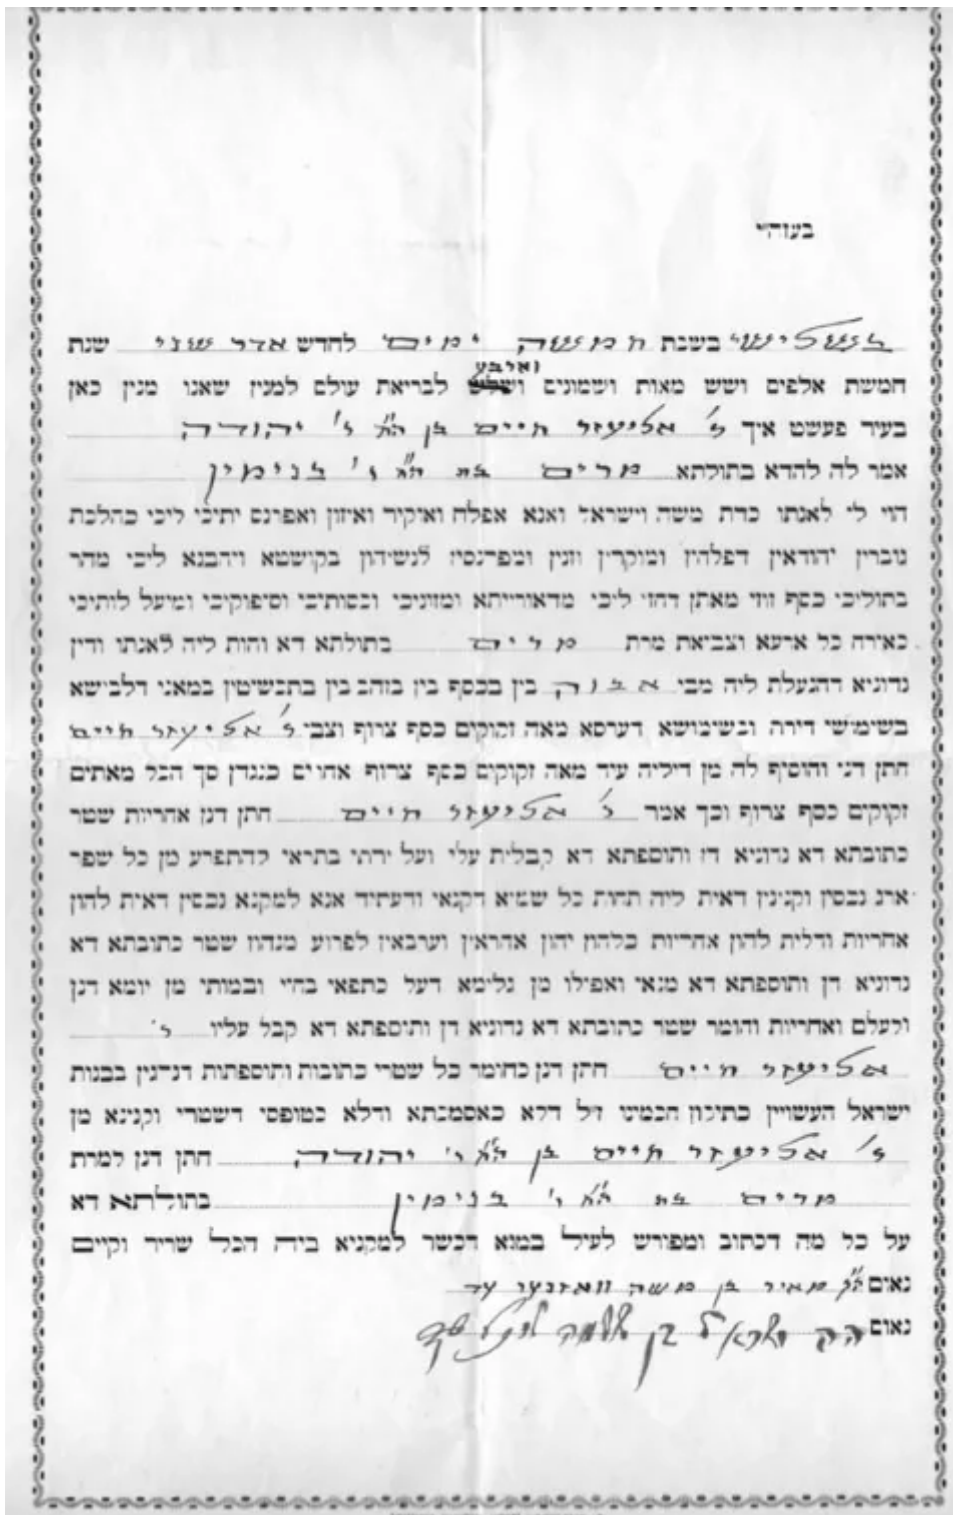 בעזהי
בשלישי בשבת חמשה ימים לחדש אדר שני שנת
ואר‎בע
חמשת אלפים ושש מאות ושמונים ושלש לבריאת עולם למנין שאנו מנין כאן
בעיר פעשט איך ר' אליעזר חיים בן ר' יהודה
אמר לה להדא בתולתא מרים בת ר' בנימין
הוי לי לאנתו כדת משה וישראל ואנא אפלח ואוקיר ואיזון ואפרנס יתיכי ליכי כהלכת
גוברין יהודאין דפלחין ומוקרין וזנין ומפרנסין לנשיהון בקושטא ויהבנא ליכי מהר
בתוליכי כסף זוזי מאתן דחזי ליכי מדאורייתא ומזוניכי וכסותיכי וסיפוקיכי ומיעל לותיכי
כאורח כל ארעא וצביאת מרת מרים בתולתא דא והות ליה לאנתו ודין
נדוניא דהנעלת ליה מבי אבוה בין בכסף בין בזהב בין בתכשיטין במאני דלבושא
בשימושי דירה ובשימושא דערסא מאה זקוקים כסף צרוף וצבי ר' אליעזר חיים
חתן דנן והוסיף לה מן דיליה עוד מאה זקוקים כסף צרוף אחרים כנגדן סך הכל מאתים
זקוקים כסף צרוף וכך אמר ר' אליעזר חיים חתן דנן אחריות שטר
כתובתא דא נדוניא דן ותוספתא דא קבלית עלי ועל ירתי בתראי להתפרע מן כל שפר
ארג נכסין וקנינין דאית ליה תחות כל שמיא דקנאי ודעתיד אנא למקנא נכסין דאית להון
אחריות ודלית להון אחריות כלהון יהון אחראין וערבאין לפרוע מנהון שטר כתובתא דא
נדוניא דן ותוספתא דא מנאי ואפילו מן גלימא דעל כתפאי בחיי ובמותי מן יומא דנן
ולעלם ואחריות וחומר שטר כתובתא דא נדוניא דן ותוספתא דא קבל עליו ר'
אליעזר חיים חתן דנן כחומר כל שטרי כתובות ותוספתות דנהגין בבנות
ישראל העשויין כתיקון חכמינו זל דלא כאסמכתא ודלא כטופסי דשטרי וקנינא מן
ר' אליעזר חיים בן ר' יהודה חתן דנן למרת
מרים בת ר' בנימין בתולתא דא
על כל מה דכתוב ומפורש לעיל במנא דכשר למקניא ביה הכל שריר וקיים
נאום מאיר בן משה וואזנער עד
נאום בן